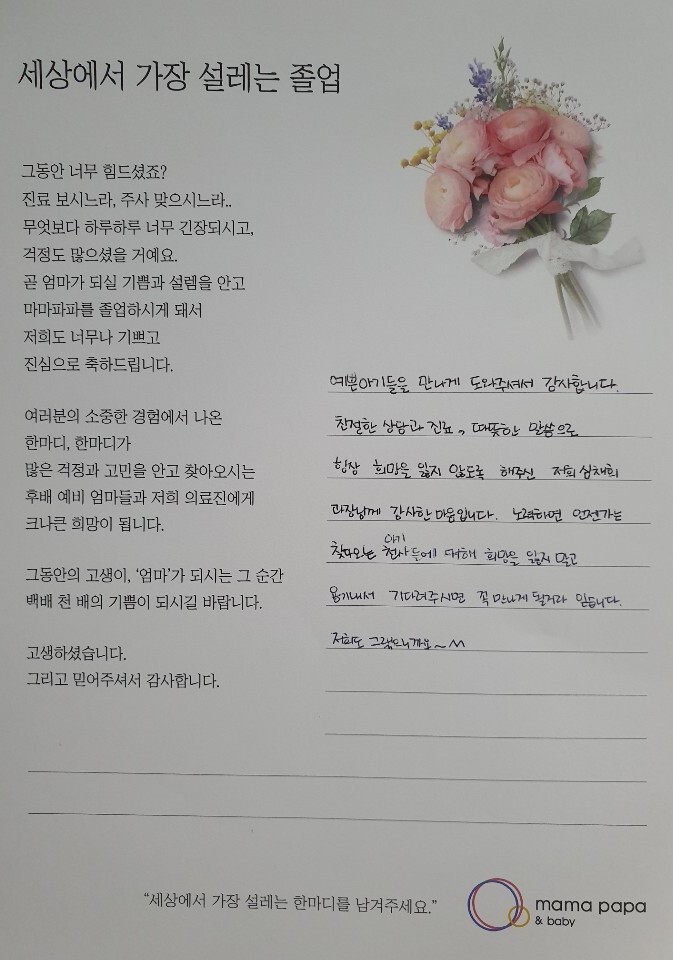 세상에서 가장 설레는 졸업
그동안 너무 힘드셨죠?
진료 보시느라, 주사 맞으시느라..
무엇보다 하루하루 너무 긴장되시고,
걱정도 많으셨을 거예요.
곧 엄마가 되실 기쁨과 설렘을 안고
마마파파를 졸업하시게 돼서
저희도 너무나 기쁘고
진심으로 축하드립니다.
여러분의 소중한 경험에서 나온
한마디, 한마디가
많은 걱정과 고민을 안고 찾아오시는
후배 예비 엄마들과 저희 의료진에게
크나큰 희망이 됩니다.
그동안의 고생이, '엄마'가 되시는 그 순간
백배 천 배의 기쁨이 되시길 바랍니다.
고생하셨습니다.
그리고 믿어주셔서 감사합니다.
예쁜아기들을 만나게 도와주셔서 감사합니다.
친절한 상담과 진료, 따뜻한 말씀으로
항상 희망을 잃지 않도록 해주신 저희 심채희
과장님께 감사한 마음입니다. 노력하면 언젠가는
찾아오는 아기천사들에 대해 희망을 잃지 말고
용기내서 기다려주시면 꼭 만나게 될거라 믿습니다.
저희도 그랬으니까요~^^
"세상에서 가장 설레는 한마디를 남겨주세요."
mama papa
& baby